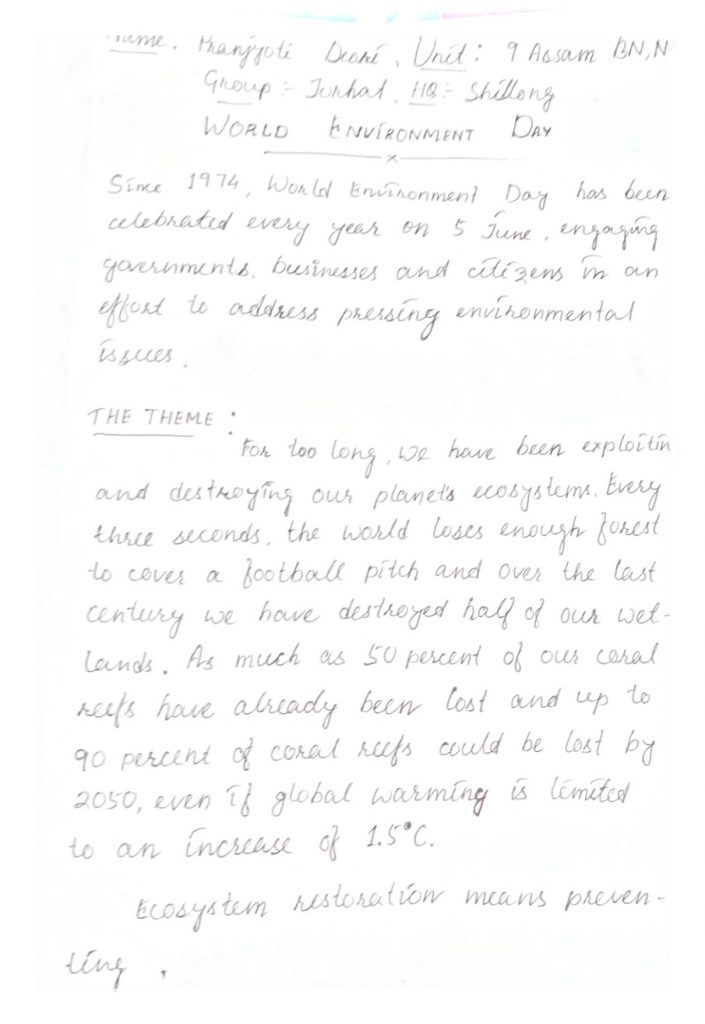 Name. Pranjyoti Deori, Unit: 9 Assam BN, N
Group:- Jorhat, HQ:- Shillong
WORLD ENVIRONMENT DAY
x
Since 1974, World Environment Day has been
celebrated every year on 5 June, engaging
governments, businesses and citizens in an
effort to address pressing environmental
issues.
THE THEME:
For too long, we have been exploitin
and destroying our planet's ecosystems. Every
three seconds, the world loses enough forest
to cover a football pitch and over the last
century we have destroyed half of our wet-
lands. As much as 50 percent of our coral
reefs have already been lost and up to
90 percent of coral reefs could be lost by
2050, even if global warming is limited
to an increase of 1.5°C.
Ecosystem restoration means preven-
ting,